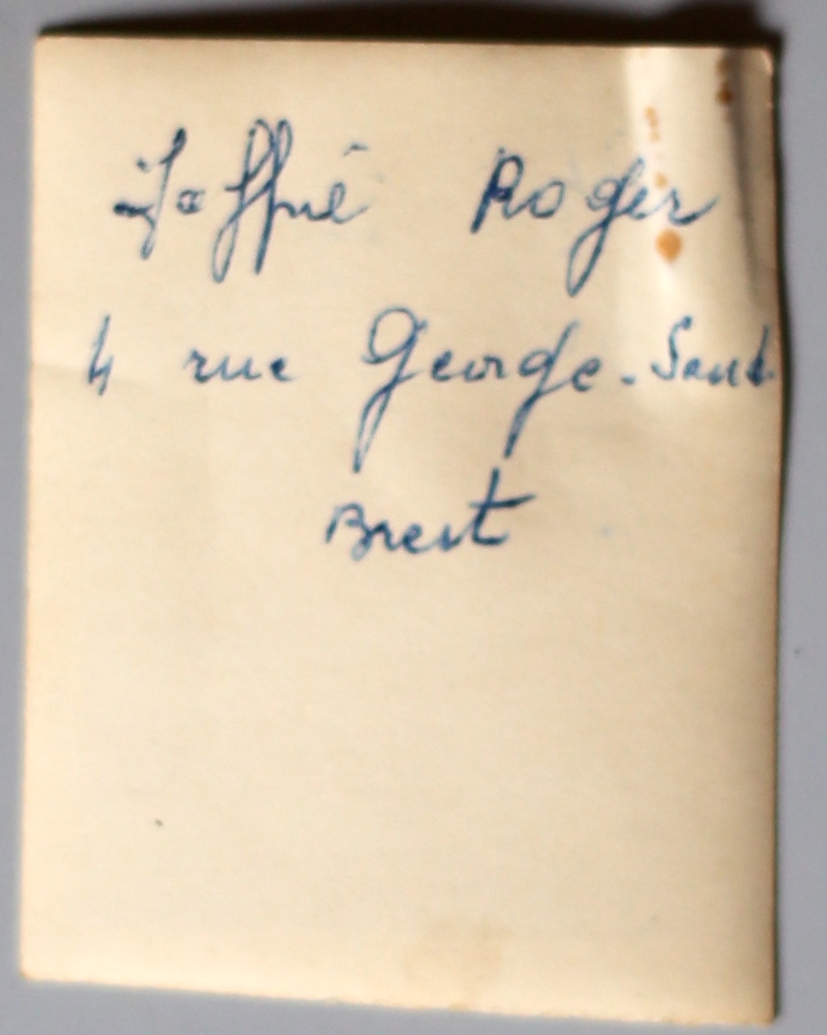 Jaffré Roger
4 rue George-Sand
Brest